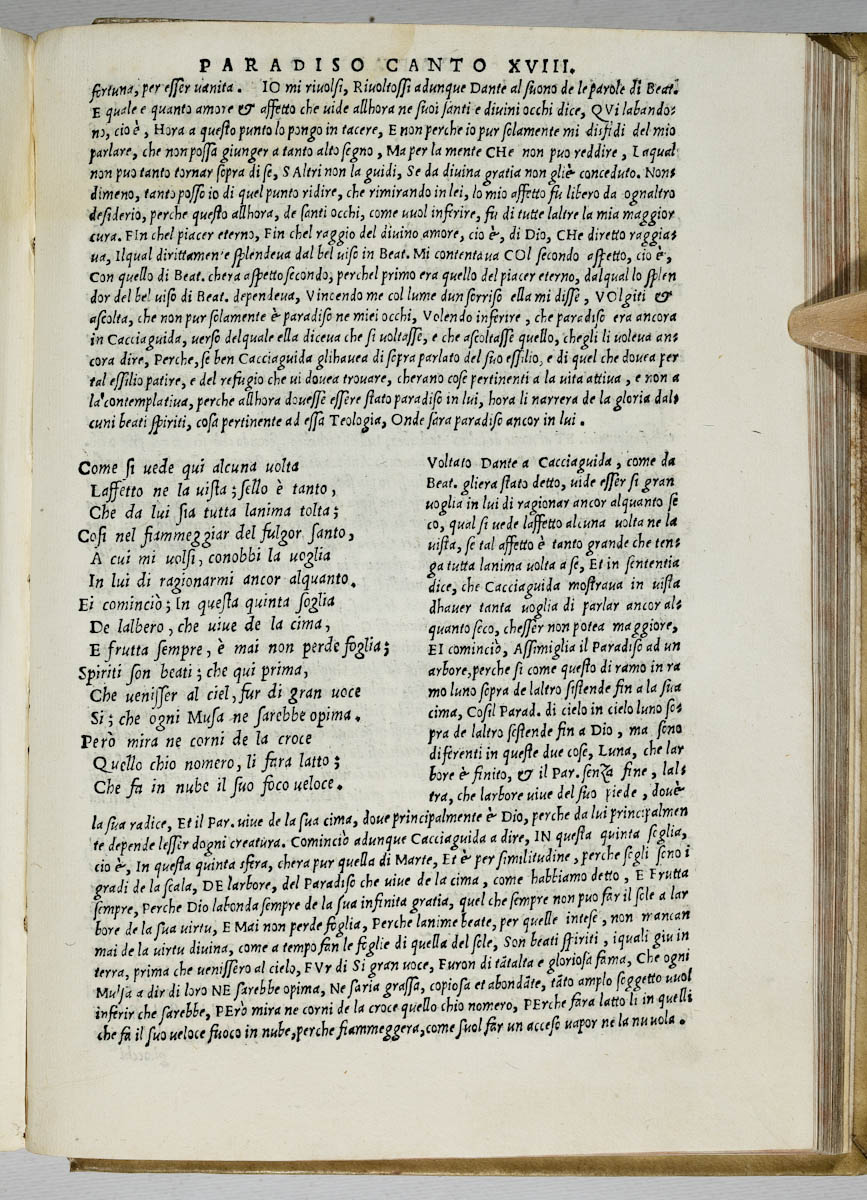 PARADISO CANTO XVIII.
fortuna, per esser uanita. IO mi riuolsi, Riuoltossi adunque Dante al suono de le parole di Beat.
E quale e quanto amore & affetto che uide allhora ne suoi santi e diuini occhi dice, QVi labando=
no, cio è, Hora a questo punto lo pongo in tacere, E non perche io pur solamente mi disfidi del mio
parlare, che non possa giunger a tanto alto segno, Ma per la mente CHe non puo reddire, Laqual
non puo tanto tornar sopra di se, S Altri non la guidi, Se da diuina gratia non gliè conceduto. Non=
dimeno, tanto posso io di quel punto ridire, che rimirando in lei, lo mio affetto fu libero da ognaltro
desiderio, perche questo allhora, de santi occhi, come uuol inferire, fu di tutte laltre la mia maggior
cura. FIn chel piacer eterno, Fin chel raggio del diuino amore, cio è, di Dio, CHe diretto raggia=
ua, Ilqual dirittamente splendeua dal bel uiso in Beat. Mi contentaua COl secondo aspetto, cio è,
Con quello di Beat. chera aspetto secondo, perchel primo era quello del piacer eterno, dalqual lo splen
dor del bel uiso di Beat. dependeua, Vincendo me col lume dun sorriso ella mi disse, VOlgiti &
ascolta, che non pur solamente è paradiso ne miei occhi, Volendo inferire, che paradiso era ancora
in Cacciaguida, uerso delquale ella diceua che si uoltasse, e che ascoltasse quello, chegli li uoleua an=
cora dire, Perche, se ben Cacciaguida glihauea di sopra parlato del suo essilio, e di quel che douea per
tal essilio patire, e del refugio che ui douea trouare, cherano cose pertinenti a la uita attiua, e non a
la contemplatiua, perche allhora douesse essere stato paradiso in lui, hora li narrera de la gloria dal=
cuni beati spiriti, cosa pertinente ad essa Teologia, Onde sara paradiso ancor in lui.
Come si uede qui alcuna uolta
Laffetto ne la uista; sello è tanto,
Che da lui sia tutta lanima tolta;
Cosi nel fiammeggiar del fulgor santo,
A cui mi uolsi, conobbi la uoglia
In lui di ragionarmi ancor alquanto.
Ei cominciò; In questa quinta soglia
De lalbero, che uiue de la cima,
E frutta sempre, è mai non perde foglia;
Spiriti son beati; che qui prima,
Che uenisser al ciel, fur di gran uoce
Si; che ogni Musa ne sarebbe opima.
Però mira ne corni de la croce
Quello chio nomero, li fara latto;
Che fa in nube il suo foco ueloce.
Voltato Dante a Cacciaguida, come da
Beat. gliera stato detto, uide esser si gran
uoglia in lui di ragionar ancor alquanto se
co, qual si uede laffetto alcuna uolta ne la
uista, se tal affetto è tanto grande che ten=
ga tutta lanima uolta a se, Et in sententia
dice, che Cacciaguida mostraua in uista
dhauer tanta uoglia di parlar ancor al=
quanto seco, chesser non potea maggiore,
EI cominciò, Assimiglia il Paradiso ad un
arbore, perche si come questo di ramo in ra
mo luno sopra de laltro sistende fin a la sua
cima, Cosil Parad. di cielo in cielo luno so=
pra de laltro sestende fin a Dio, ma sono
diferenti in queste due cose, Luna, che lar
bore è finito, & il Par. senza fine, lal=
tra, che larbore uiue del suo piede, douè
la sua radice, Et il Par. uiue de la sua cima, doue principalmente è Dio, perche da lui principalmen
te depende lesser dogni creatura. Cominciò adunque Cacciaguida a dire, IN questa quinta soglia,
cio è, In questa quinta sfera, chera pur quella di Marte, Et è per similitudine, perche segli sono i
gradi de la scala, DE larbore, del Paradiso che uiue de la cima, come habbiamo detto, E Frutta
sempre, Perche Dio labonda sempre de la sua infinita gratia, quel che sempre non puo far il sole a lar
bore de la sua uirtu, E Mai non perde foglia, Perche lanime beate, per quelle intese, non mancan
mai de la uirtu diuina, come a tempo fan le foglie di quella del sole, Son beati spiriti, iquali giu in
terra, prima che uenissero al cielo, FVr di Si gran uoce, Furon di tātalta e gloriosa fama, Che ogni
Musa a dir di loro NE sarebbe opima, Ne saria grassa, copiosa et abondāte, tāto amplo soggetto uuol
inferir che sarebbe, PErò mira ne corni de la croce quello chio nomero, PErche fara latto li in quelli
che fa il suo ueloce fuoco in nube, perche fiammeggera, come suol far un acceso uapor ne la nuuola.